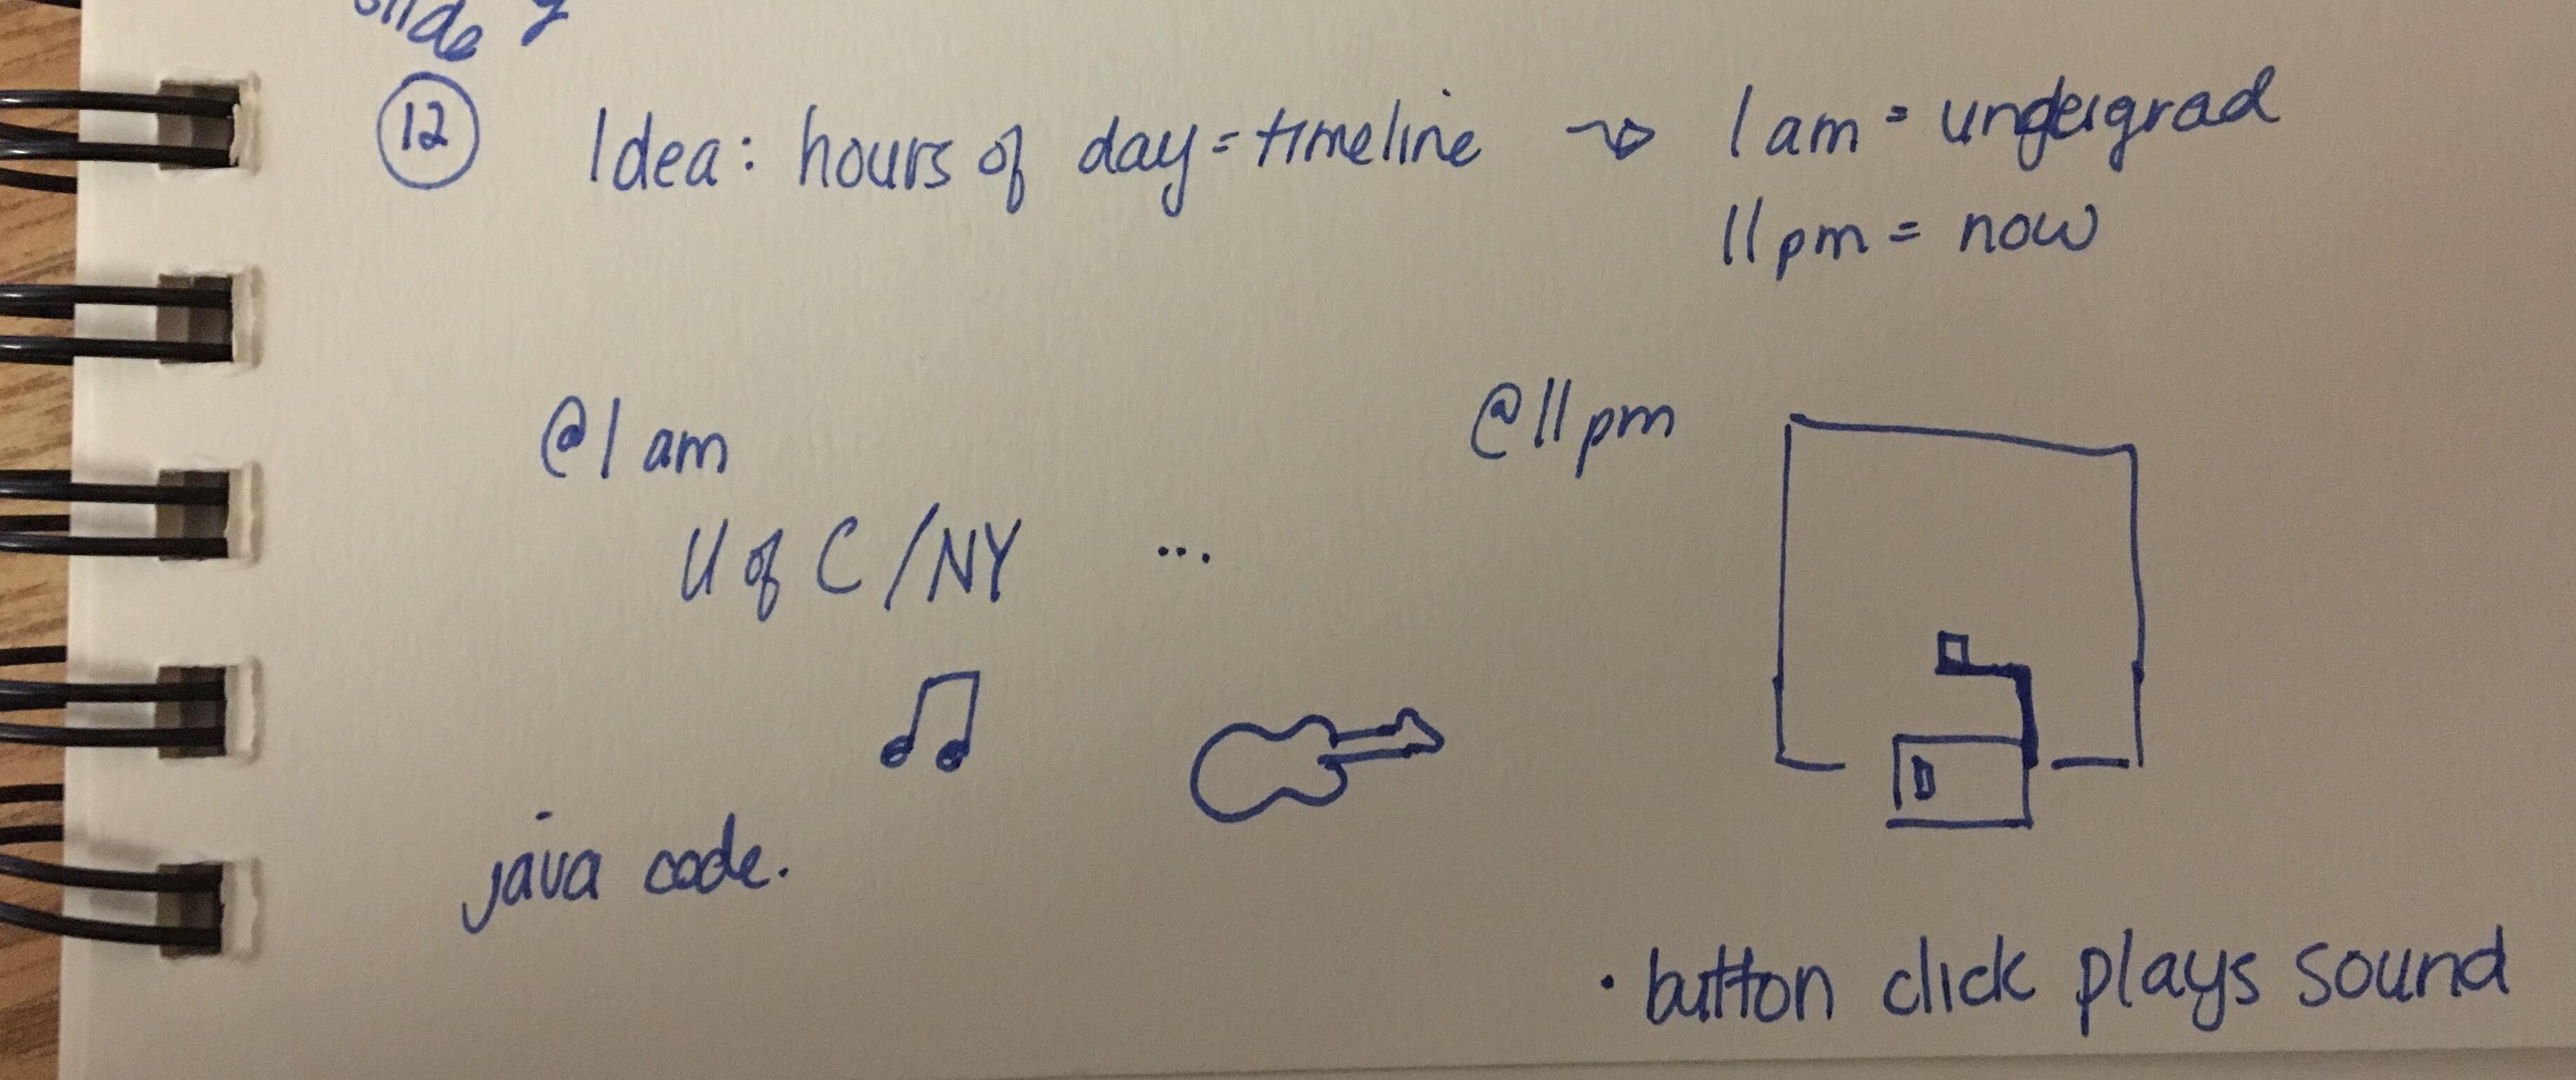 slide
12 Idea: hours of day = timeline → 1 am = undergrad
11 pm = now
@ 1 am
@ 11 pm
U of C / NY ...
java code.
D
• button click plays sound